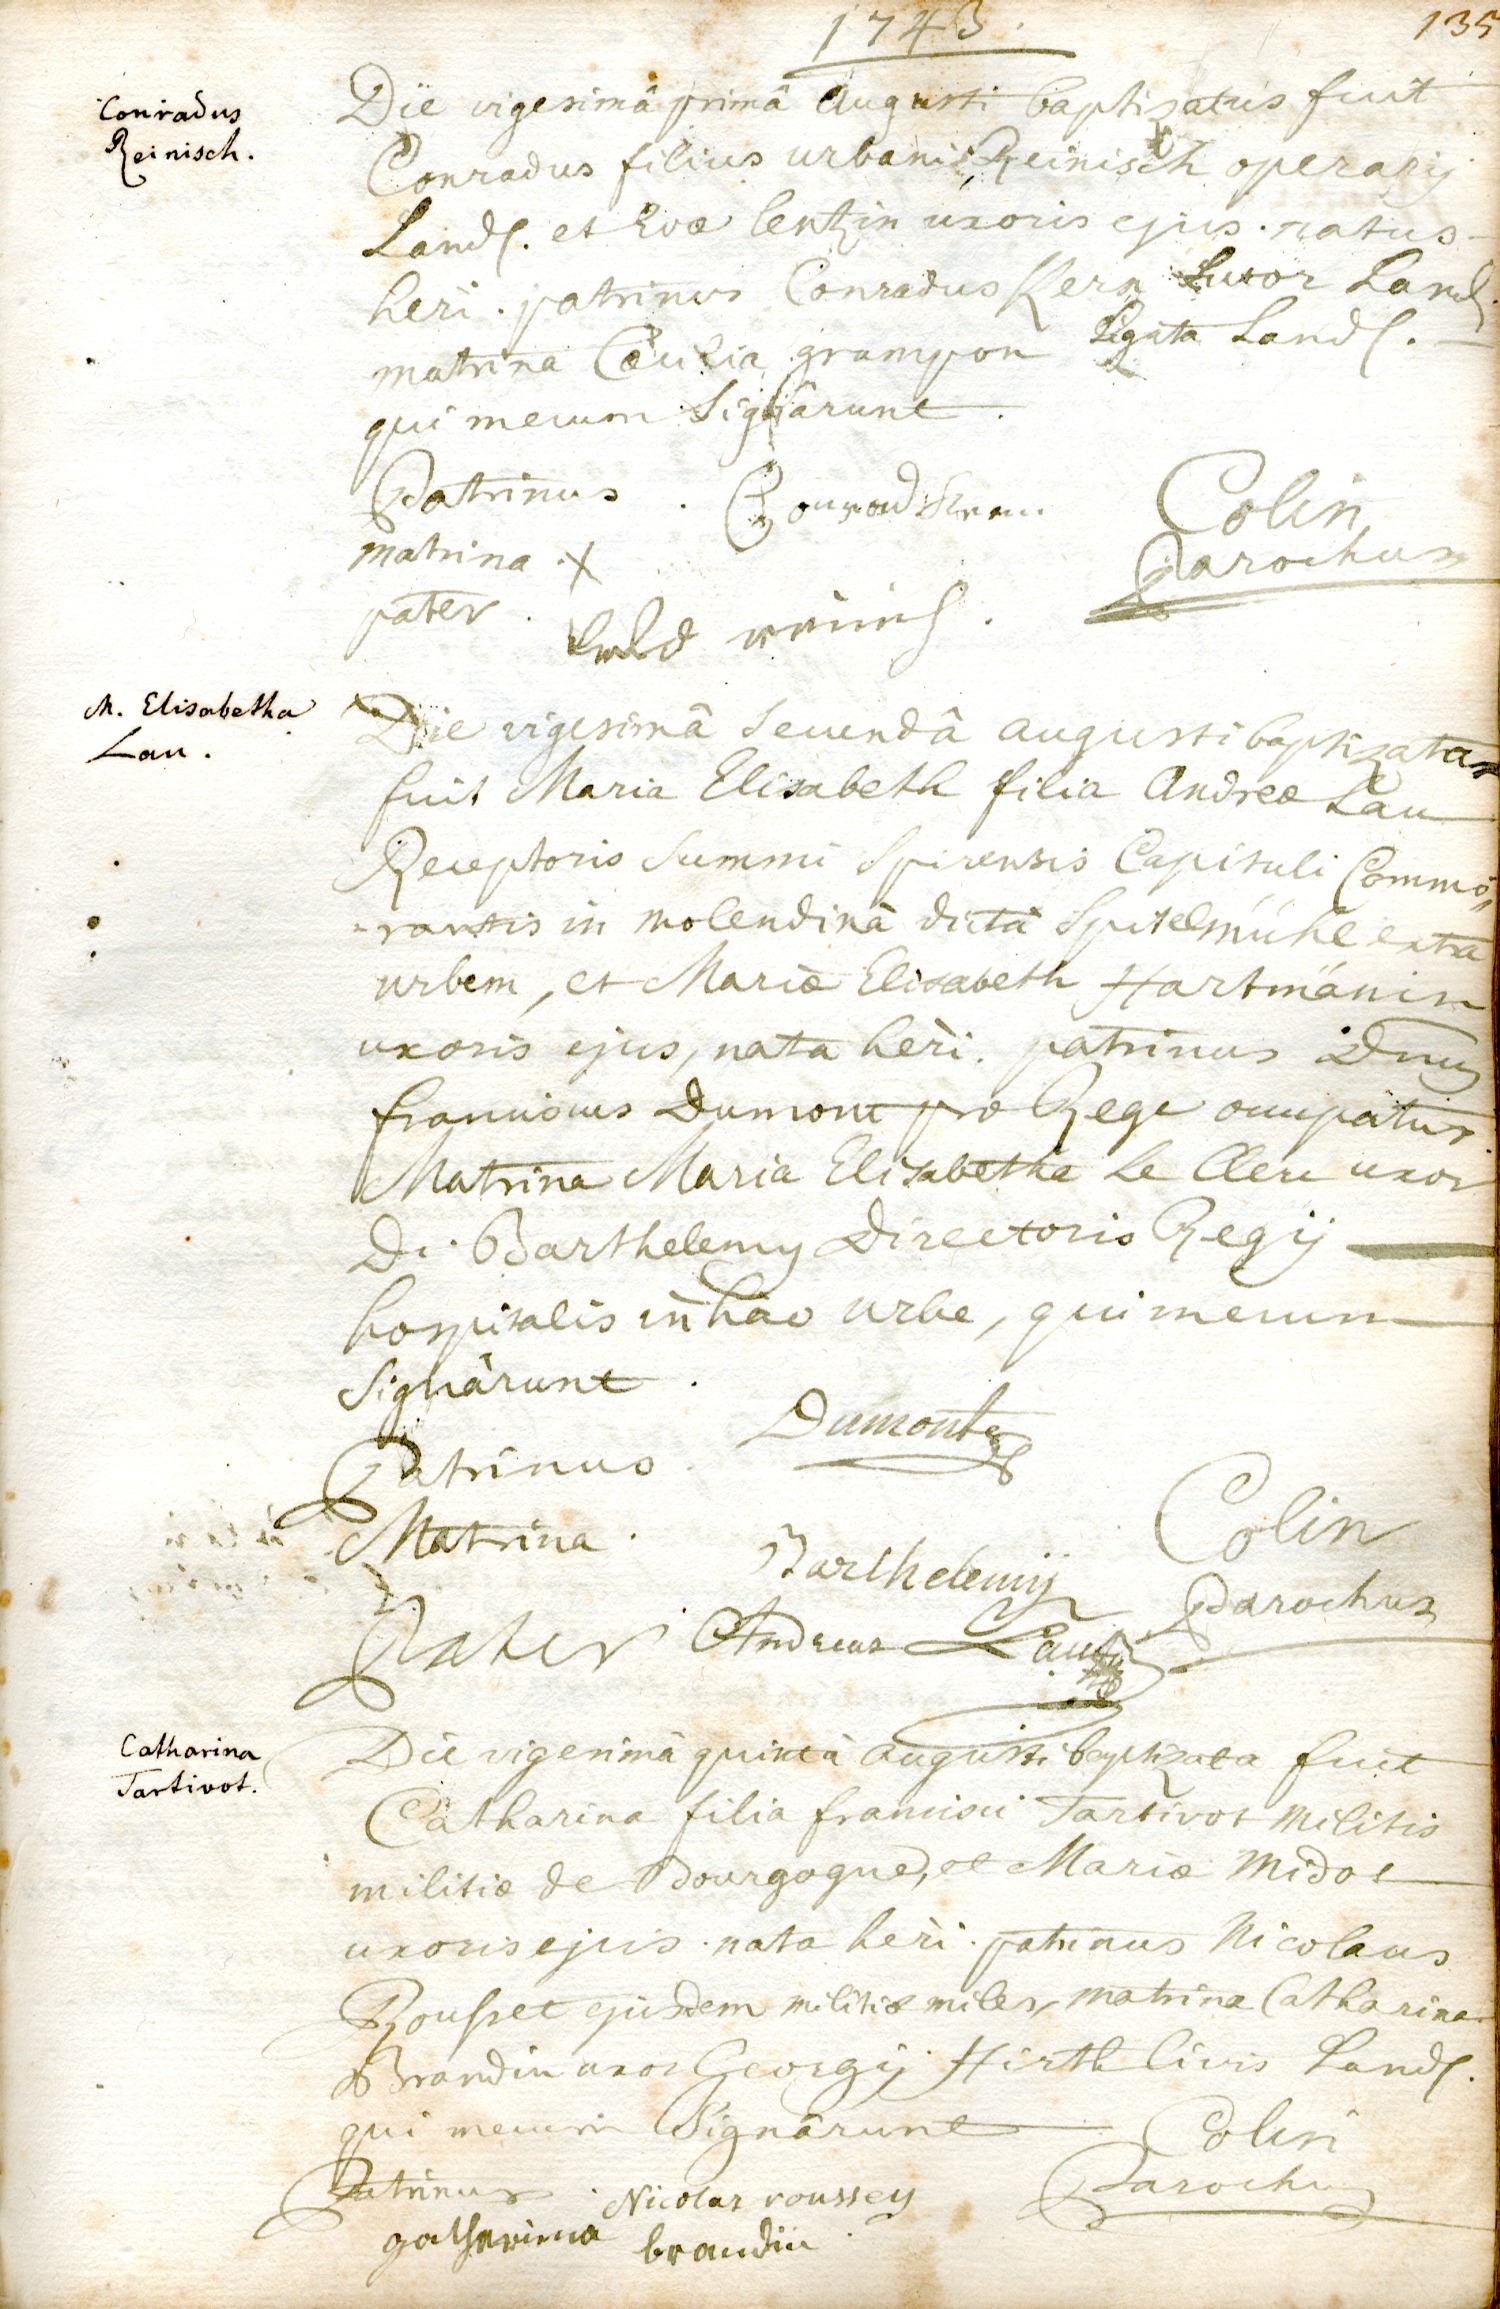 1743.
135
Conradus
Reinisch.
Die vigesimâ primâ Augusti baptizatus fuit
Conradus filius urbani Reinisch operarij
Land. et Evæ lentzin uxoris ejus. natus
heri. patrinus Conradus Kern Sutor Land.
matrina Cæcilia grampon ligata Land.
qui mecum Signârunt.
Patrinus. Conrad
matrina. X
pater.
Colin
Parochus
M. Elisabetha
Lau.
Die vigesimâ Secundâ augusti baptizata
fuit Maria Elisabeth filia Andreæ Lau
Receptoris Summi Spirensis Capituli Commo„
-rantis in molendinâ dictâ Spitelmühl extra
urbem, et Mariæ Elisabeth Hartmänin
uxoris ejus, nata heri. patrinus Dnus
franciscus Dumont pro Rege occupatus
Matrina Maria Elisabetha Le Clerc uxor
Di. Barthelemy Directoris Regij
hospitalis in hac urbe, qui mecum
Signârunt.
Patrinus. Dumont
Matrina. Barthelemij
Pater Andreas Lau
Colin
Parochus
Catharina
Tartivot.
Die vigesimâ quintâ augusti baptizata fuit
Catharina filia francisci Tartivot militis
militiæ de Bourgogne, et Mariæ Midot
uxoris ejus. nata heri. patrinus Nicolaus
Rousset ejusdem militiæ miles, matrina Catharina
Brandin uxor Georgij Hirth Civis Land.
qui mecum Signârunt
Colin
Parochus
Patrinus. Nicolas roussey
gatharina brandin